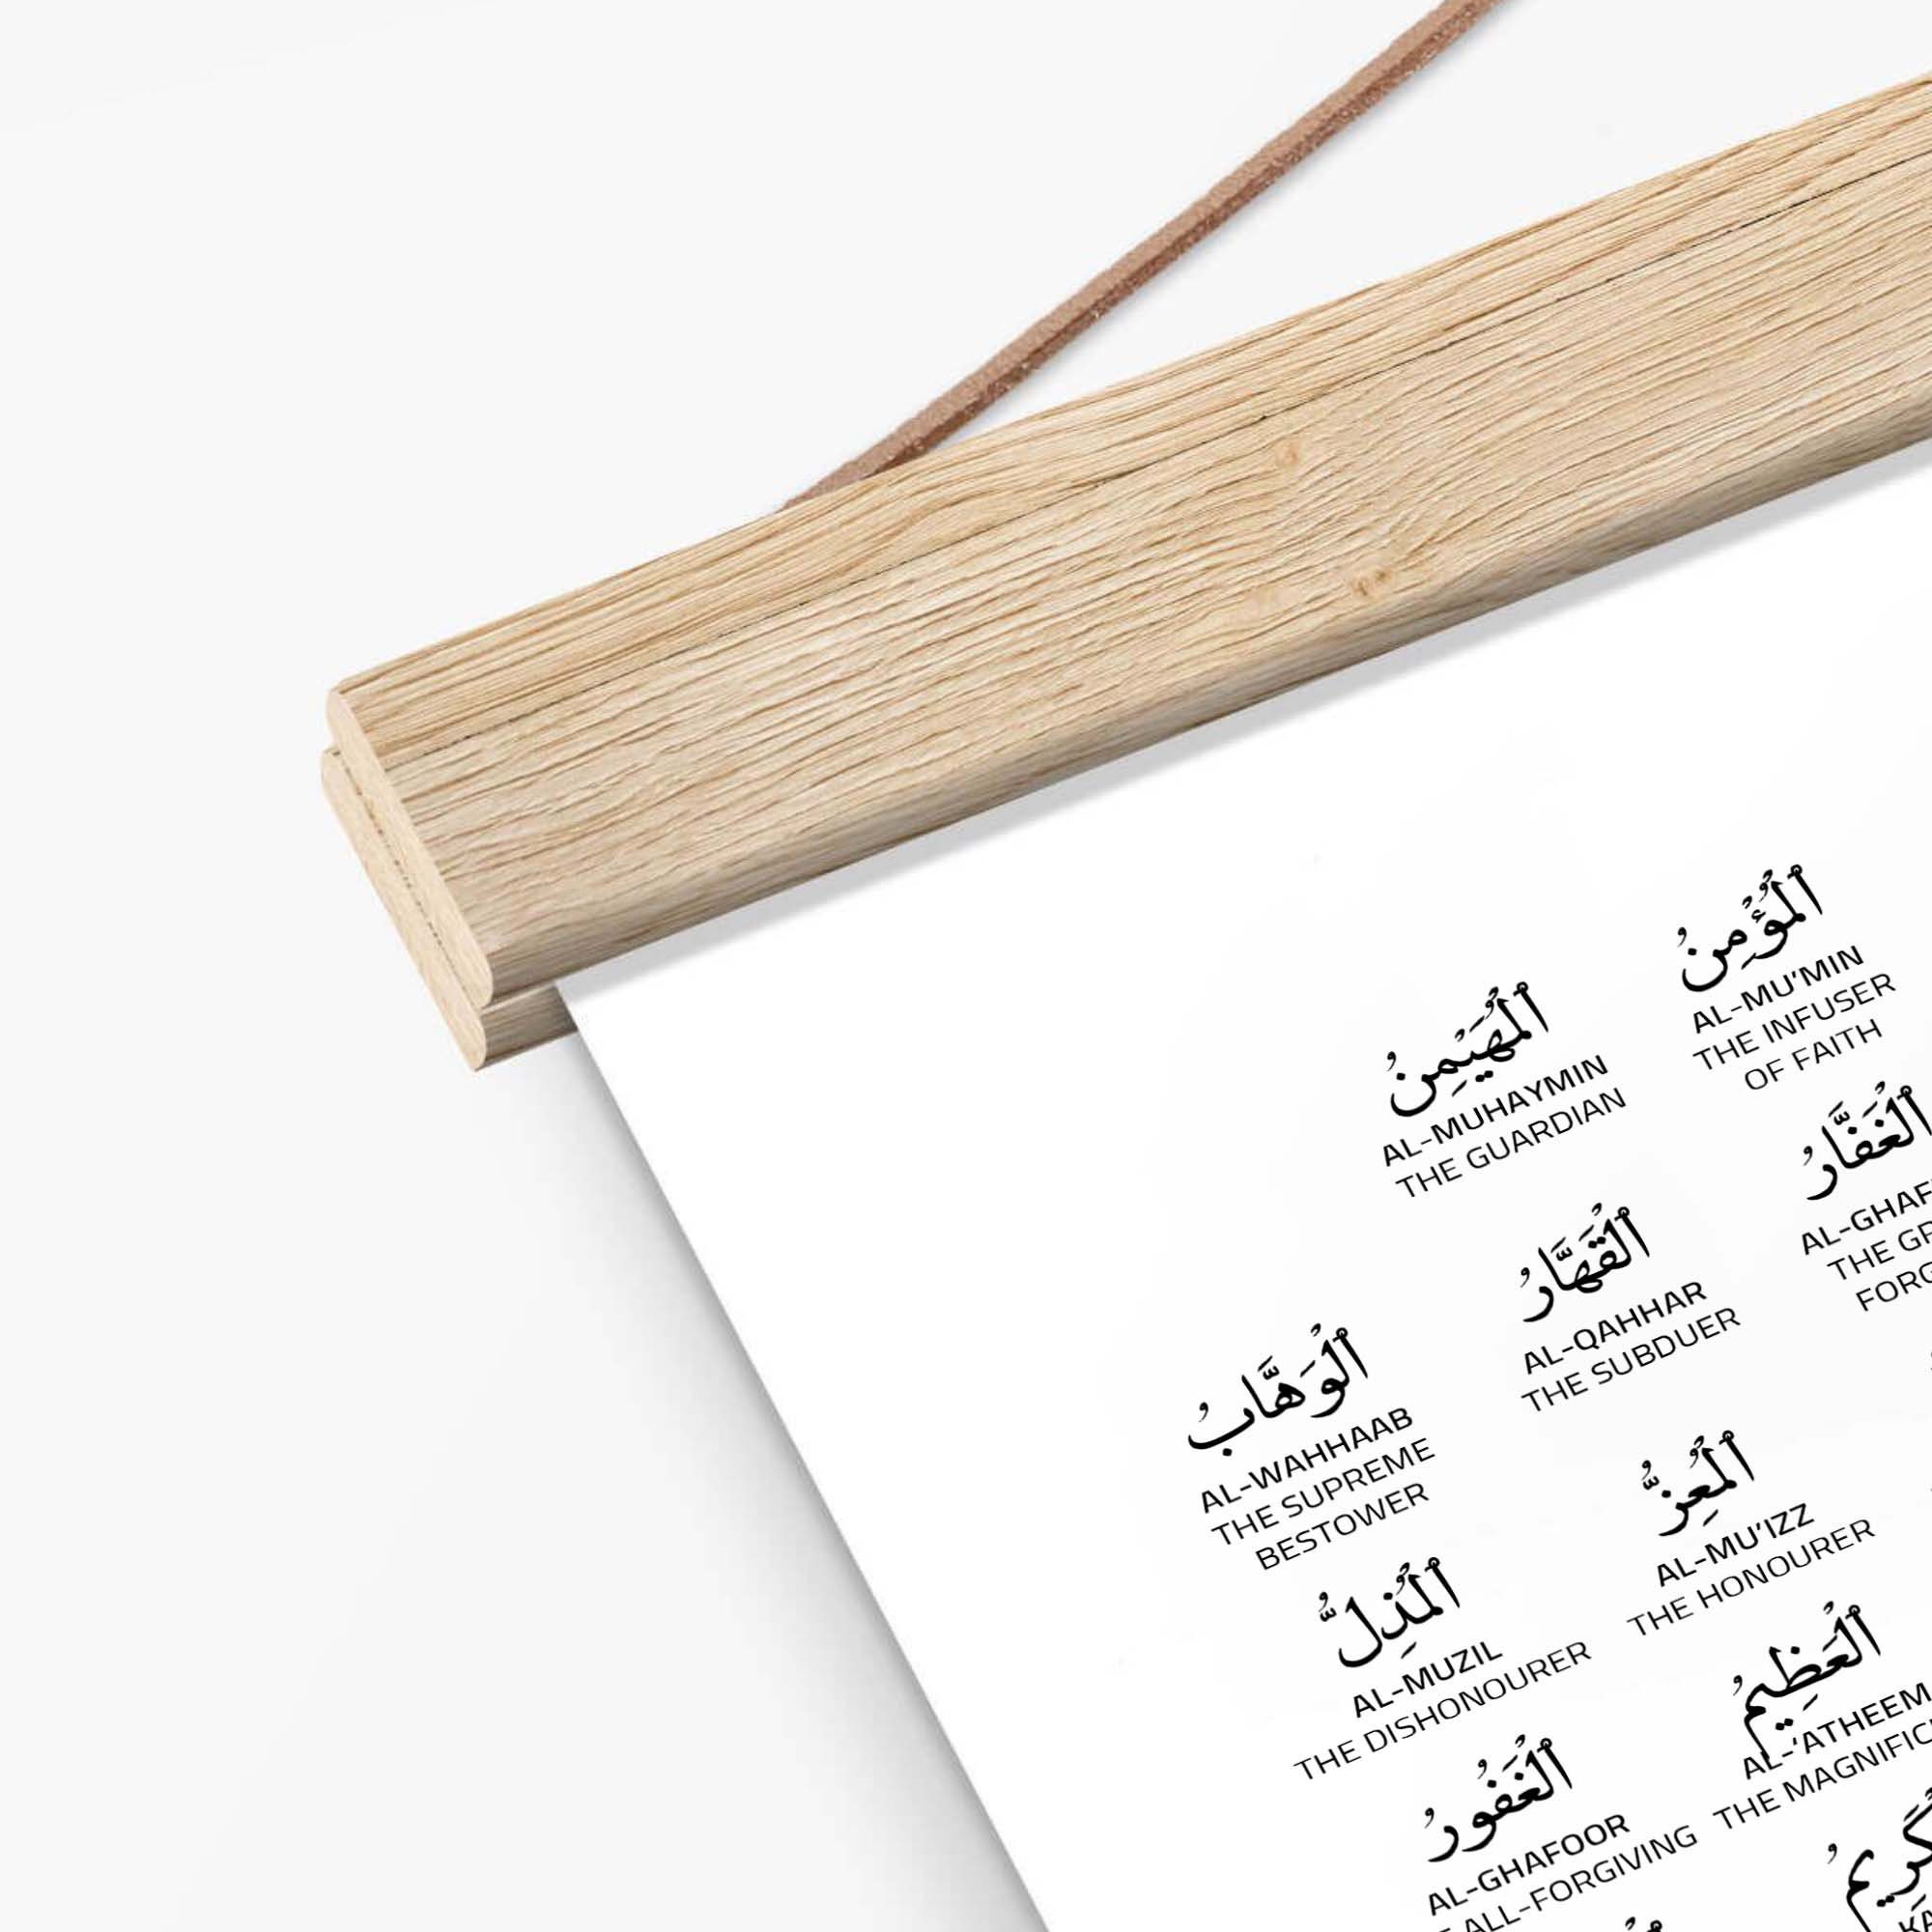 ٱلْمُؤْمِنُ
AL-MU'MIN
THE INFUSER
OF FAITH
ٱلْمُهَيْمِنُ
AL-MUHAYMIN
THE GUARDIAN
ٱلْغَفَّارُ
AL-GHAF
THE GR
FORG
ٱلْقَهَّارُ
AL-QAHHAR
THE SUBDUER
ٱلْوَهَّابُ
AL-WAHHAAB
THE SUPREME
BESTOWER
ٱلْمُعِزُّ
AL-MU'IZZ
THE HONOURER
ٱلْمُذِلُّ
AL-MUZIL
THE DISHONOURER
ٱلْعَظِيمُ
AL-'ATHEEM
THE MAGNIFIC
ٱلْغَفُورُ
AL-GHAFOOR
ALL-FORGIVING